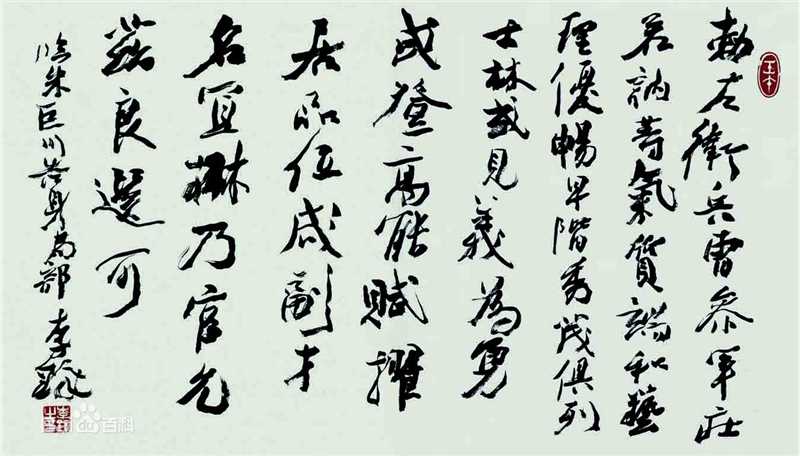 勅左衛兵曹參軍莊
若訥等氣質端和藝
理優暢早階秀茂俱列
士林或見義為勇
或登高能賦擢
居品位咸副才
名宜楙乃官允
茲良選可
臨朱巨川告身局部 李
百科